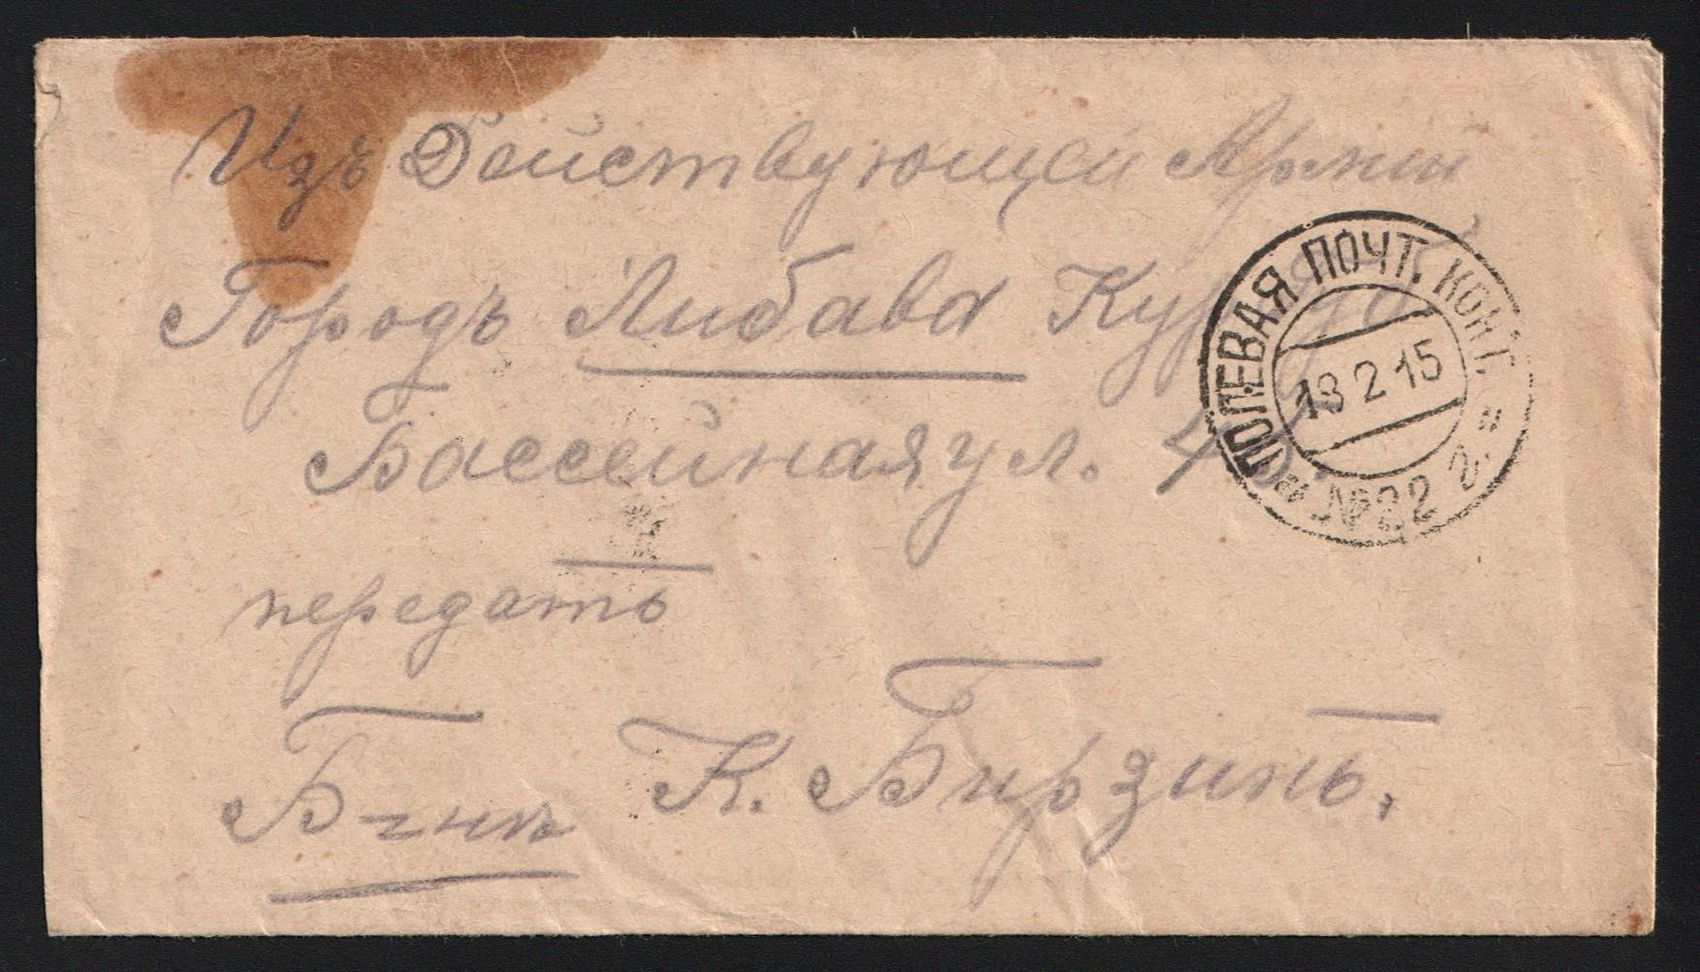 Изъ Действующей Армiи
Городъ Либава Курл.
Бассейная ул. 4
передать
К. Бирзинь.
"ПОЛЕВАЯ ПОЧТ. КОНТ."
18 2 15
№ 22